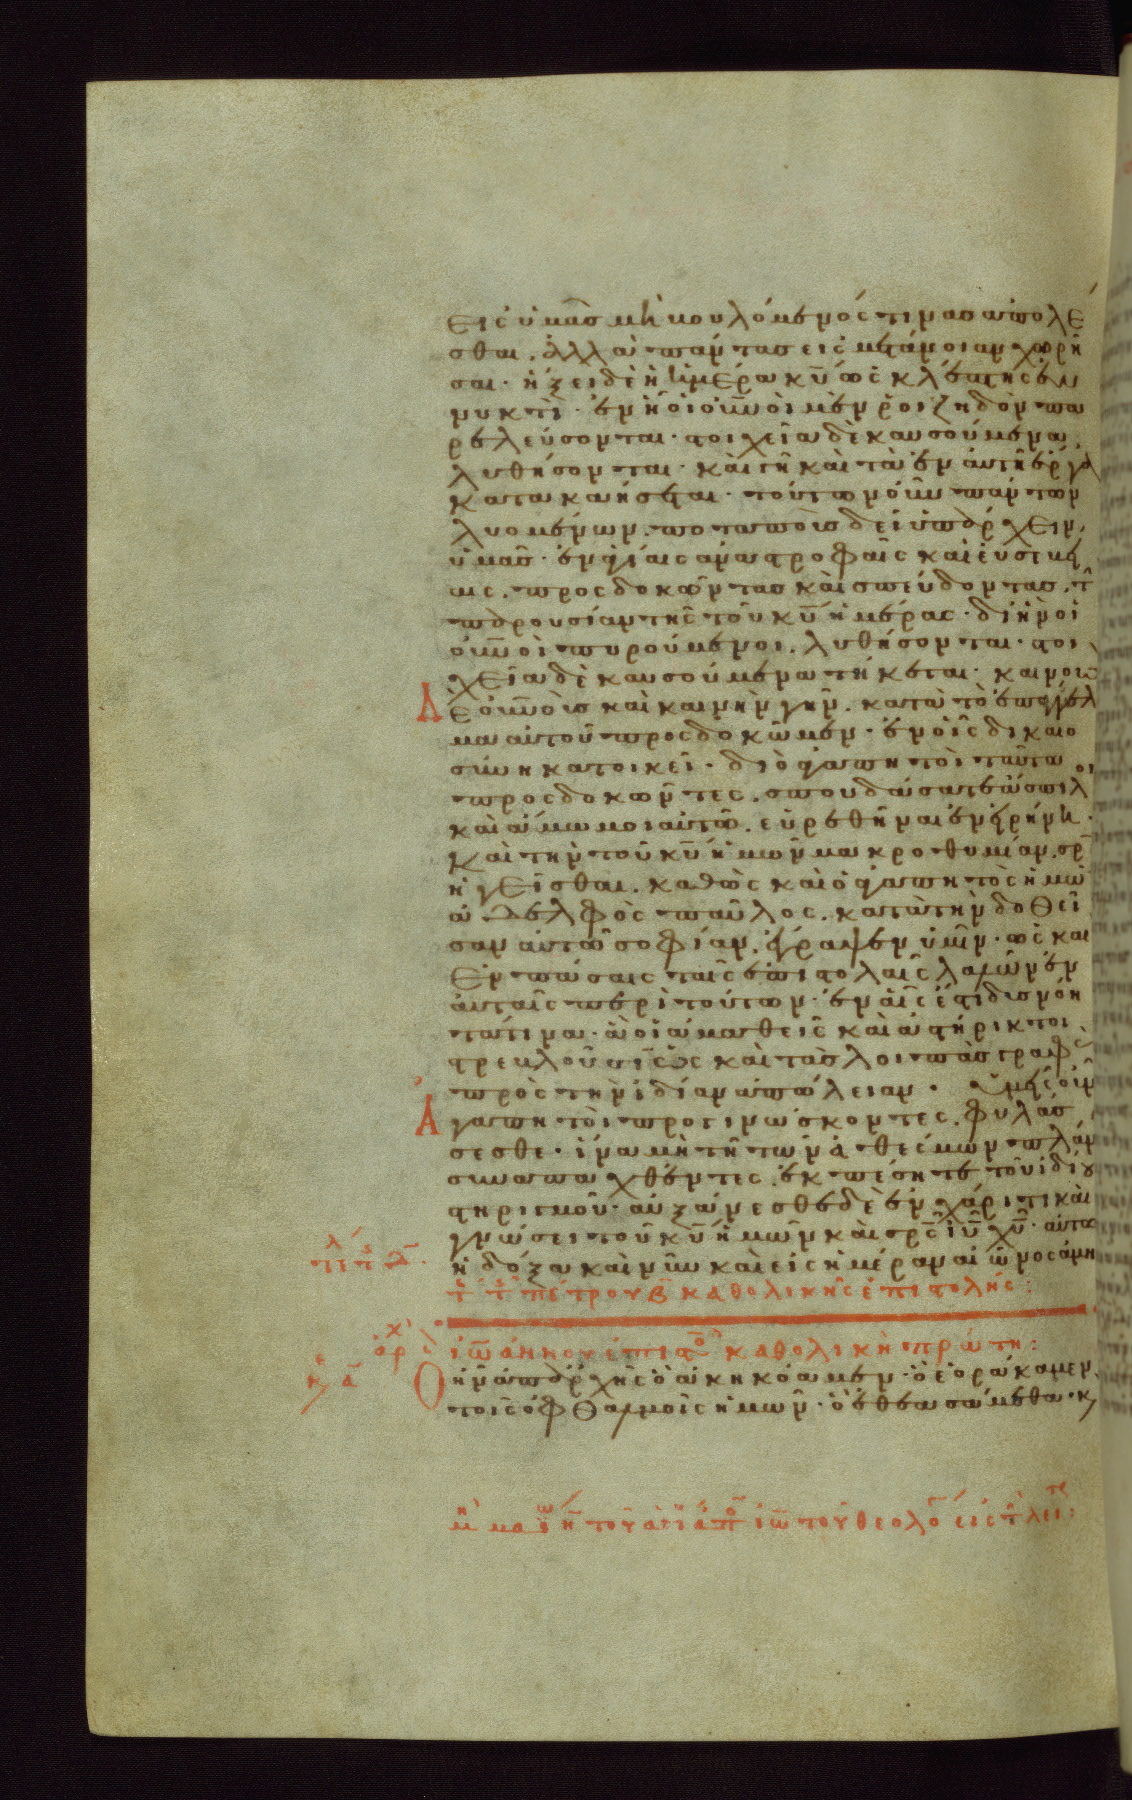 εις ὑμᾶς μὴ βουλόμενός τινας ἀπολέ
σθαι. ἀλλὰ πάντας εἰς μετάνοιαν χωρῆ
σαι. ἥξει δὲ ἡ ἡμέρα κ̅υ̅ ὡς κλέπτης ἐν
νυκτὶ. ἐν ἧ οἱ οὐ̅νοὶ μὲν ῥοιζηδὸν πα
ρελεύσονται. στοιχεῖα δὲ καυσούμενα
λυθήσονται. καὶ γῆ καὶ τὰ ἐν αὐτῆ ἔργα
κατακαήσεται. τούτων οὖν πάντων
λυομένων. ποταποὺς δεῖ ὑπάρχειν
ὑμᾶς. ἐν ἁγίαις ἀναστροφαῖς καὶ εὐσεβεί
αις. προσδοκῶντας καὶ σπεύδοντας τὴν
παρουσίαν τῆς τοῦ κ̅υ̅ ἡμέρας. δι ἣν οἱ
οὐ̅νοὶ πυρούμενοι. λυθήσονται. στοι
χεῖα δὲ καυσούμενα τήκεται. καινοὺς
δὲ οὐ̅νοὺς καὶ καινὴν γῆν. κατὰ τὸ ἐπάγγελ
μα αὐτοῦ προσδοκῶμεν. ἐν οἷς δικαιο
σύνη κατοικεῖ. διὸ ἀγαπητοὶ ταῦτα
προσδοκῶντες. σπουδάσατε ἄσπιλοι
καὶ ἀμώμοι αὐτῶ. εὑρεθῆναι ἐν εἰρήνη.
καὶ τὴν τοῦ κ̅υ̅ ἡμῶν μακροθυμίαν. σ̅ρ̅ι̅αν
ἡγεῖσθαι. καθὼς καὶ ὁ ἀγαπητὸς ἡμῶν
ἀδελφὸς παῦλος. κατὰ τὴν δοθεῖ
σαν αὐτῶ σοφίαν. ἔγραψεν ὑμῖν. ὡς καὶ
ἐν πάσαις ταῖς ἐπιστολαῖς λαλῶν ἐν
αὐταῖς περὶ τούτων. ἐν αἷς ἐστι δυσνόη
τά τινα. ἃ οἱ ἀμαθεῖς καὶ ἀστήρικτοι
στρεβλοῦσιν ὡς καὶ τὰς λοιπὰς γραφὰς
πρὸς τὴν ἰδίαν ἀπώλειαν. ὑμεῖς οὖν
ἀγαπητοὶ προγινώσκοντες. φυλάσ
σεσθε. ἵνα μὴ τῆ τῶν ἀθέσμων πλάνη
συναπαχθέντες. ἐκπέσητε τοῦ ἰδίου
στηριγμοῦ. αὐξάνεσθε δὲ ἐν χάριτι καὶ
γνώσει τοῦ κ̅υ̅ ἡμῶν καὶ σ̅ρ̅ς̅ ι̅υ̅ χ̅υ̅. αὐτῶ
ἡ δόξα καὶ νῦν καὶ εἰς ἡμέραν αἰῶνος ἀμὴν
πέτρου β̅ καθολικῆς ἐπιστολῆς:
ἰωάννου ἐπιστο̅ καθολικὴ πρώτη:
Ὃ ἦν ἀπ ἀρχῆς ὃ ἀκηκόαμεν. ὃ ἑοράκαμεν
τοῖς ὀφθαλμοῖς ἡμῶν. ὃ ἐθεασάμεθα. κ
τοῦ ἁγί ἀπο ἰω̅ τοῦ θεολο̅ εἰς τ̅ λει: